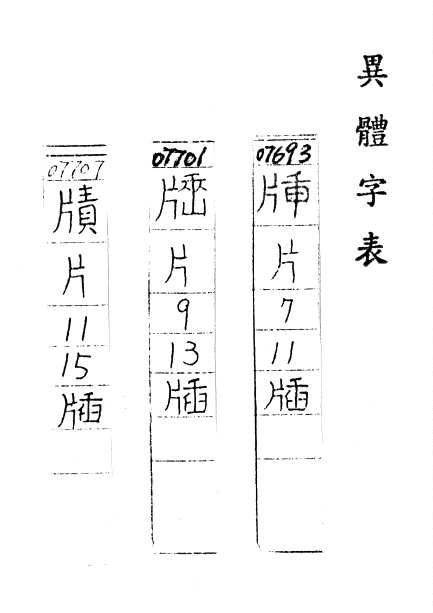 異體字表
07693
片
7
11
牐
07701
片
9
13
牐
07707
片
11
15
牐